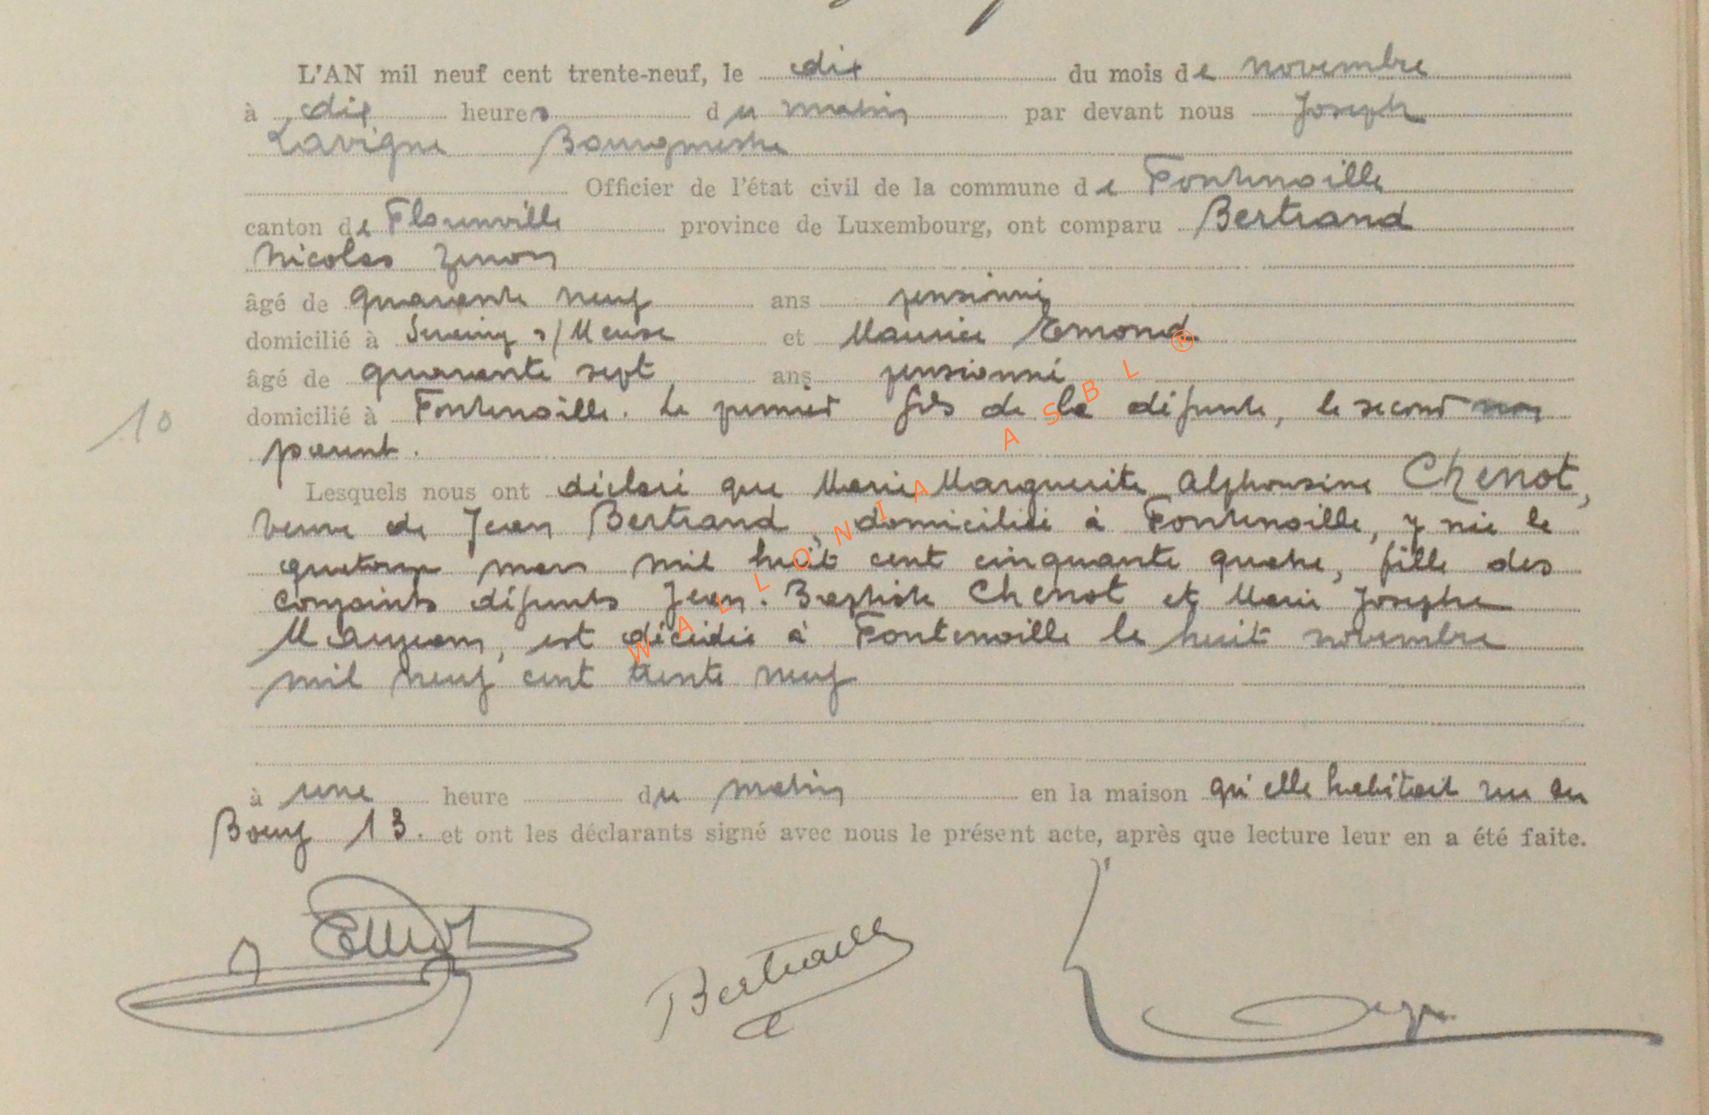 L'AN mil neuf cent trente-neuf, le dix du mois de novembre
à dix heures du matin par devant nous Joseph
Lavigne Bourgmestre
Officier de l'état civil de la commune de Fontenoille
canton de Florenville province de Luxembourg, ont comparu Bertrand
Nicolas Zenon
âgé de quarante neuf ans pensionné
domicilié à Seraing s/Meuse et Maurice Emond
âgé de quarante sept ans pensionné
10 domicilié à Fontenoille. Le premier fils de la défunte, le second non
parent.
Lesquels nous ont déclaré que Marie Marguerite Alphonsine Chenot,
veuve de Jean Bertrand, domiciliée à Fontenoille, y née le
quatorze mars mil huit cent cinquante quatre, fille des
conjoints défunts Jean-Baptiste Chenot et Marie Josephe
est décédée à Fontenoille le huit novembre
mil neuf cent trente neuf
à une heure du matin en la maison qu'elle habitait rue du
Boeuf 13. et ont les déclarants signé avec nous le présent acte, après que lecture leur en a été faite.
Emond Bertrand
WALLONIA ASBL ®